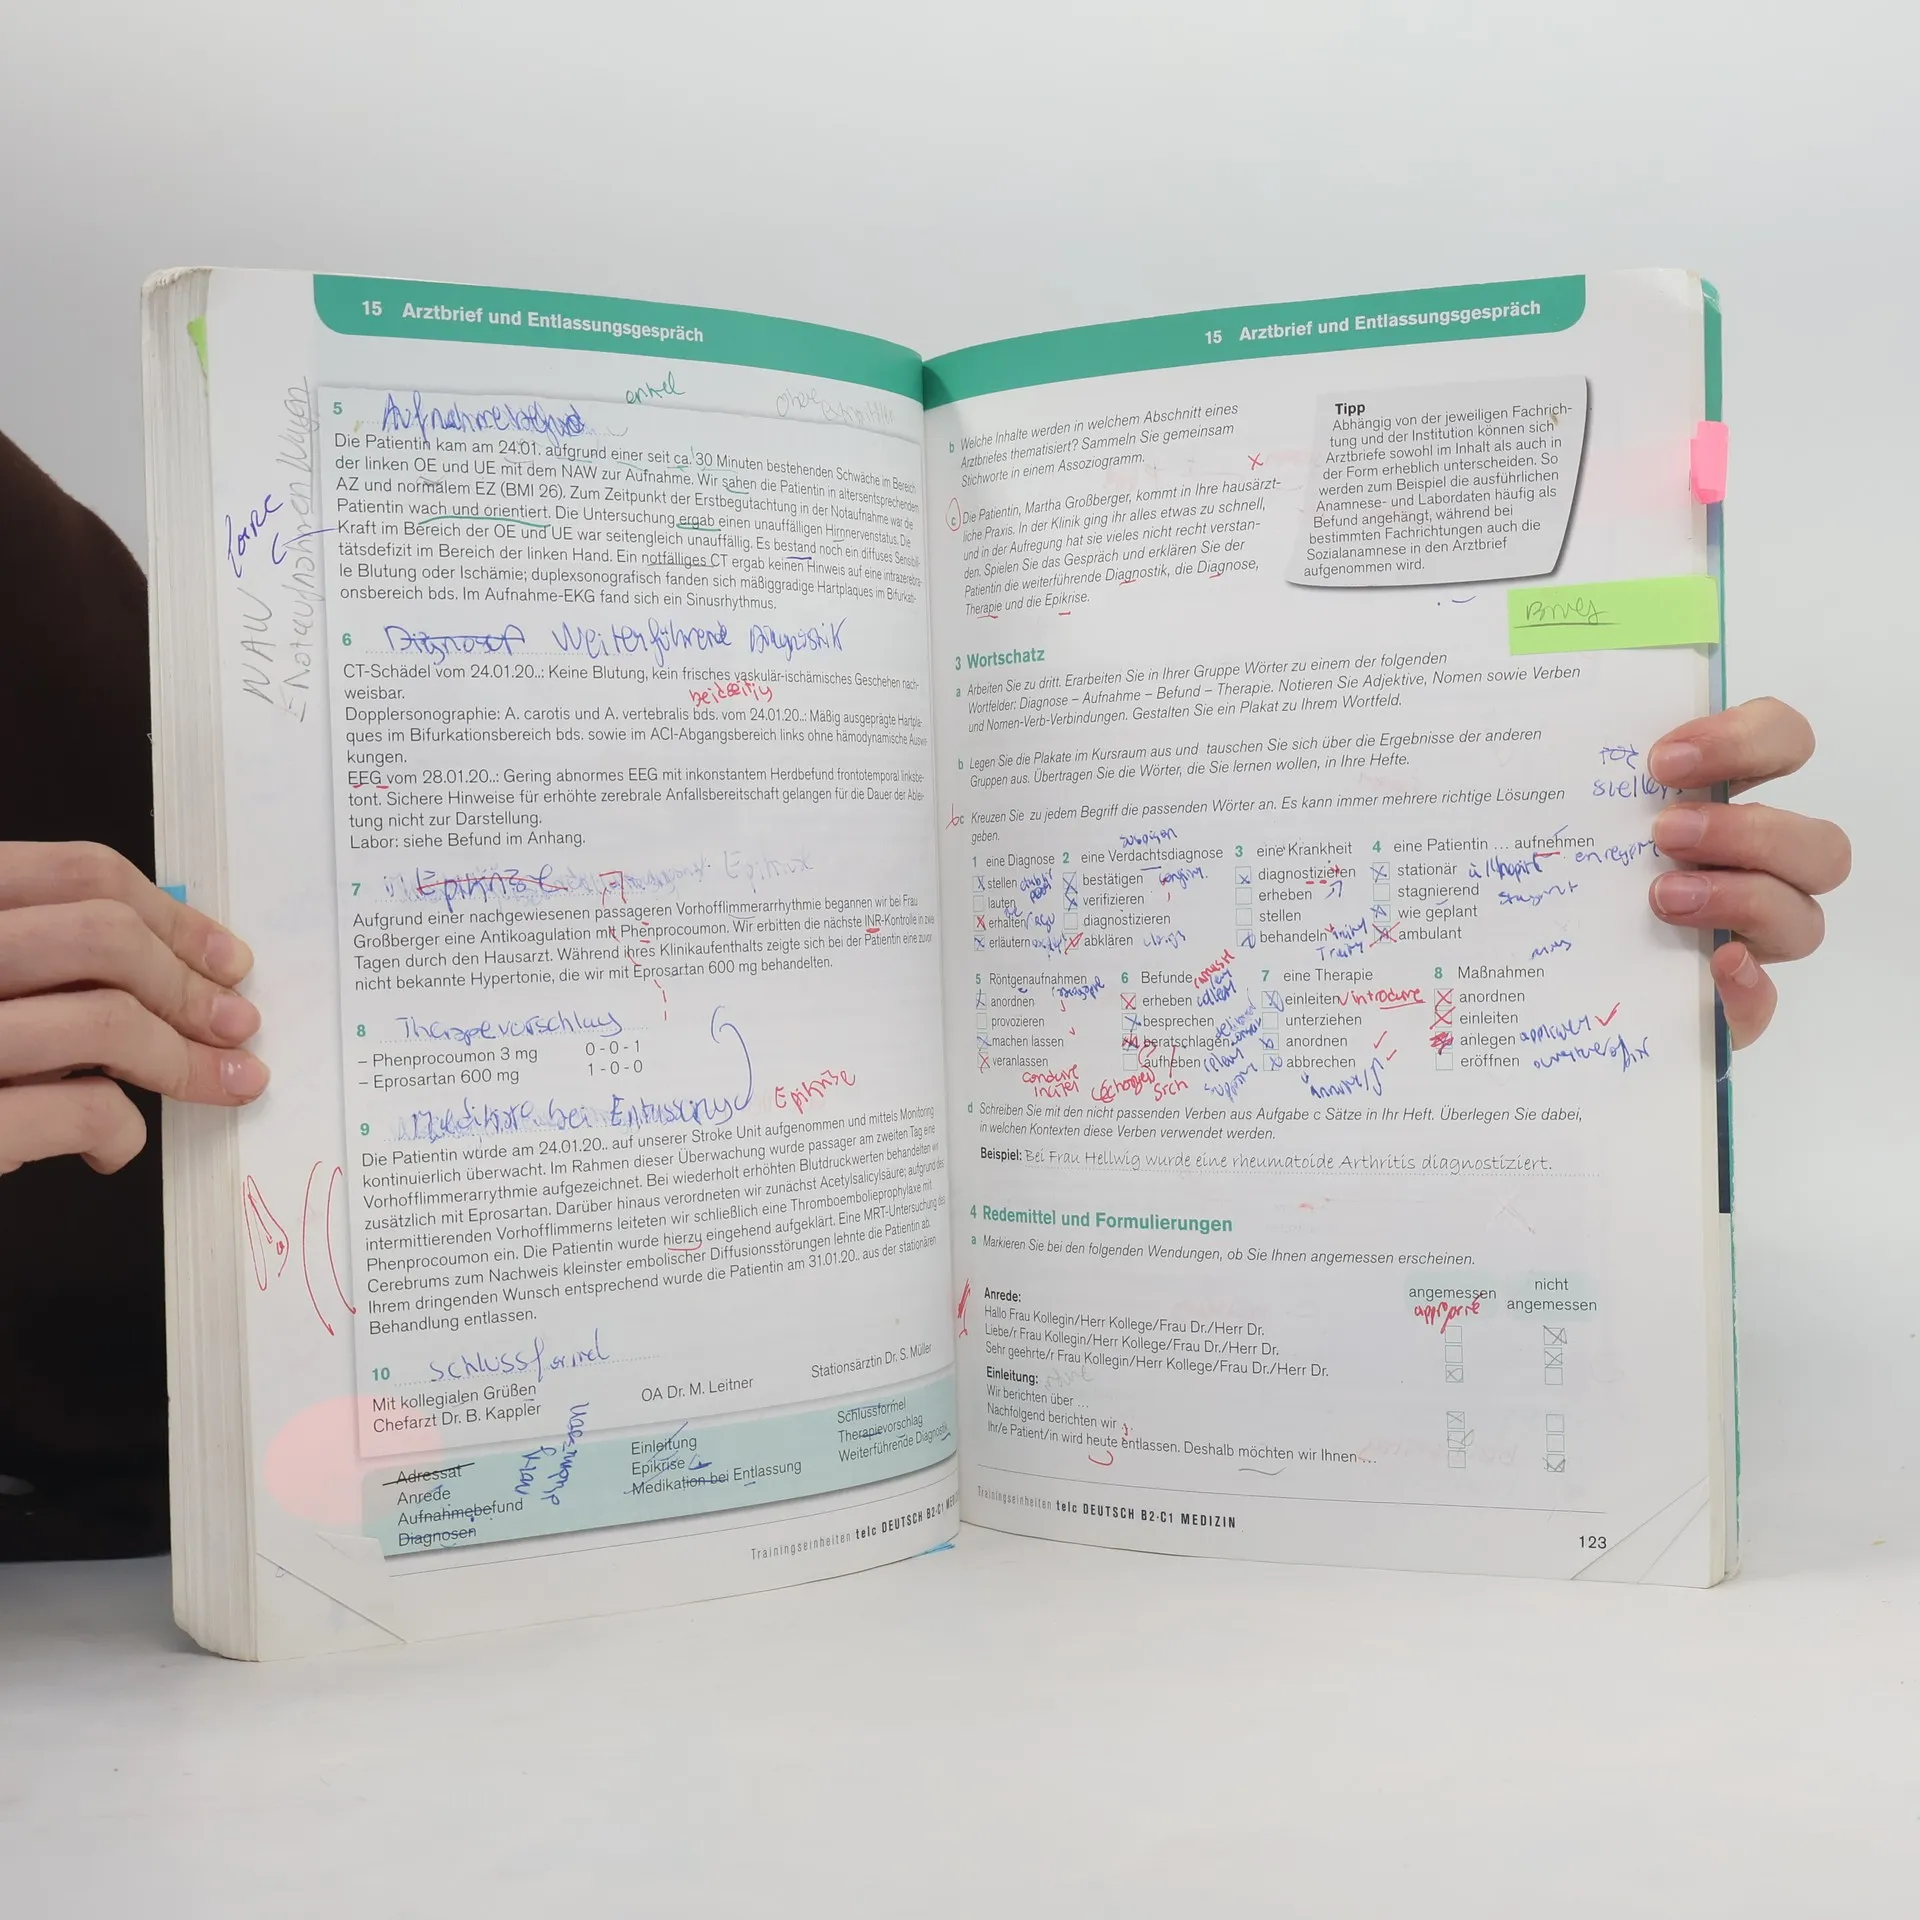 15 Arztbrief und Entlassungsgespräch
5 Aufnahmebefund
Die Patientin kam am 24.01. aufgrund einer seit ca. 30 Minuten bestehenden Schwäche im Bereich
der linken OE und UE mit dem NAW zur Aufnahme. Wir sahen die Patientin in altersentsprechendem
AZ und normalem EZ (BMI 26). Zum Zeitpunkt der Erstbegutachtung in der Notaufnahme war die
Patientin wach und orientiert. Die Untersuchung ergab einen unauffälligen Hirnnervenstatus. Die
Kraft im Bereich der OE und UE war seitengleich unauffällig. Es bestand noch ein diffuses Sensibili-
tätsdefizit im Bereich der linken Hand. Ein notfälliges CT ergab keinen Hinweis auf eine intrazerebra-
le Blutung oder Ischämie; duplexsonografisch fanden sich mäßiggradige Hartplaques im Bifurkati-
onsbereich bds. Im Aufnahme-EKG fand sich ein Sinusrhythmus.
NAW
Notaufnahmen Wagen
6 Diagnosen Weiterführende Diagnostik
CT-Schädel vom 24.01.20..: Keine Blutung, kein frisches vaskulär-ischämisches Geschehen nach-
weisbar.
beidseitig
Dopplersonographie: A. carotis und A. vertebralis bds. vom 24.01.20..: Mäßig ausgeprägte Hartpla-
ques im Bifurkationsbereich bds. sowie im ACI-Abgangsbereich links ohne hämodynamische Auswir-
kungen.
EEG vom 28.01.20..: Gering abnormes EEG mit inkonstantem Herdbefund frontotemporal linksbe-
tont. Sichere Hinweise für erhöhte zerebrale Anfallsbereitschaft gelangen für die Dauer der Ablei-
tung nicht zur Darstellung.
Labor: siehe Befund im Anhang.
7 Epikrise
Aufgrund einer nachgewiesenen passageren Vorhofflimmerarrhythmie begannen wir bei Frau
Großberger eine Antikoagulation mit Phenprocoumon. Wir erbitten die nächste INR-Kontrolle in zwei
Tagen durch den Hausarzt. Während ihres Klinikaufenthalts zeigte sich bei der Patientin eine zuvor
nicht bekannte Hypertonie, die wir mit Eprosartan 600 mg behandelten.
8 Therapievorschlag
– Phenprocoumon 3 mg 0 - 0 - 1
– Eprosartan 600 mg 1 - 0 - 0
9 Medikation bei Entlassung Epikrise
Die Patientin wurde am 24.01.20.. auf unserer Stroke Unit aufgenommen und mittels Monitoring
kontinuierlich überwacht. Im Rahmen dieser Überwachung wurde passager am zweiten Tag eine
Vorhofflimmerarrythmie aufgezeichnet. Bei wiederholt erhöhten Blutdruckwerten behandelten wir
zusätzlich mit Eprosartan. Darüber hinaus verordneten wir zunächst Acetylsalicylsäure; aufgrund des
intermittierenden Vorhofflimmerns leiteten wir schließlich eine Thromboembolieprophylaxe mit
Phenprocoumon ein. Die Patientin wurde hierzu eingehend aufgeklärt. Eine MRT-Untersuchung des
Cerebrums zum Nachweis kleinster embolischer Diffusionsstörungen lehnte die Patientin ab.
Ihrem dringenden Wunsch entsprechend wurde die Patientin am 31.01.20.. aus der stationären
Behandlung entlassen.
10 Schlussformel
Mit kollegialen Grüßen
Chefarzt Dr. B. Kappler OA Dr. M. Leitner Stationsärztin Dr. S. Müller
Adressat
Anrede
Aufnahmebefund
Diagnosen
Einleitung
Epikrise
Medikation bei Entlassung
Schlussformel
Therapievorschlag
Weiterführende Diagnostik
Trainingseinheiten telc DEUTSCH B2·C1
15 Arztbrief und Entlassungsgespräch
b Welche Inhalte werden in welchem Abschnitt eines
Arztbriefes thematisiert? Sammeln Sie gemeinsam
Stichworte in einem Assoziogramm.
c Die Patientin, Martha Großberger, kommt in Ihre hausärzt-
liche Praxis. In der Klinik ging ihr alles etwas zu schnell,
und in der Aufregung hat sie vieles nicht recht verstan-
den. Spielen Sie das Gespräch und erklären Sie der
Patientin die weiterführende Diagnostik, die Diagnose,
Therapie und die Epikrise.
Tipp
Abhängig von der jeweiligen Fachrich-
tung und der Institution können sich
Arztbriefe sowohl im Inhalt als auch in
der Form erheblich unterscheiden. So
werden zum Beispiel die ausführlichen
Anamnese- und Labordaten häufig als
Befund angehängt, während bei
bestimmten Fachrichtungen auch die
Sozialanamnese in den Arztbrief
aufgenommen wird.
3 Wortschatz
a Arbeiten Sie zu dritt. Erarbeiten Sie in Ihrer Gruppe Wörter zu einem der folgenden
Wortfelder: Diagnose – Aufnahme – Befund – Therapie. Notieren Sie Adjektive, Nomen sowie Verben
und Nomen-Verb-Verbindungen. Gestalten Sie ein Plakat zu Ihrem Wortfeld.
b Legen Sie die Plakate im Kursraum aus und tauschen Sie sich über die Ergebnisse der anderen
Gruppen aus. Übertragen Sie die Wörter, die Sie lernen wollen, in Ihre Hefte.
c Kreuzen Sie zu jedem Begriff die passenden Wörter an. Es kann immer mehrere richtige Lösungen
geben.
1 eine Diagnose
stellen
lauten
erhalten
erläutern
2 eine Verdachtsdiagnose
bestätigen
verifizieren
diagnostizieren
abklären
3 eine Krankheit
diagnostizieren
erheben
stellen
behandeln
4 eine Patientin ... aufnehmen
stationär
stagnierend
wie geplant
ambulant
5 Röntgenaufnahmen
anordnen
provozieren
machen lassen
veranlassen
6 Befunde
erheben
besprechen
beratschlagen
aufheben
7 eine Therapie
einleiten introduire
unterziehen
anordnen
abbrechen
8 Maßnahmen
anordnen
einleiten
anlegen
eröffnen
d Schreiben Sie mit den nicht passenden Verben aus Aufgabe c Sätze in Ihr Heft. Überlegen Sie dabei,
in welchen Kontexten diese Verben verwendet werden.
Beispiel: Bei Frau Hellwig wurde eine rheumatoide Arthritis diagnostiziert.
4 Redemittel und Formulierungen
a Markieren Sie bei den folgenden Wendungen, ob Sie Ihnen angemessen erscheinen.
angemessen nicht angemessen
Anrede:
Hallo Frau Kollegin/Herr Kollege/Frau Dr./Herr Dr.
Liebe/r Frau Kollegin/Herr Kollege/Frau Dr./Herr Dr.
Sehr geehrte/r Frau Kollegin/Herr Kollege/Frau Dr./Herr Dr.
Einleitung:
Wir berichten über ...
Nachfolgend berichten wir
Ihr/e Patient/in wird heute entlassen. Deshalb möchten wir Ihnen ...
Trainingseinheiten telc DEUTSCH B2·C1 MEDIZIN
123